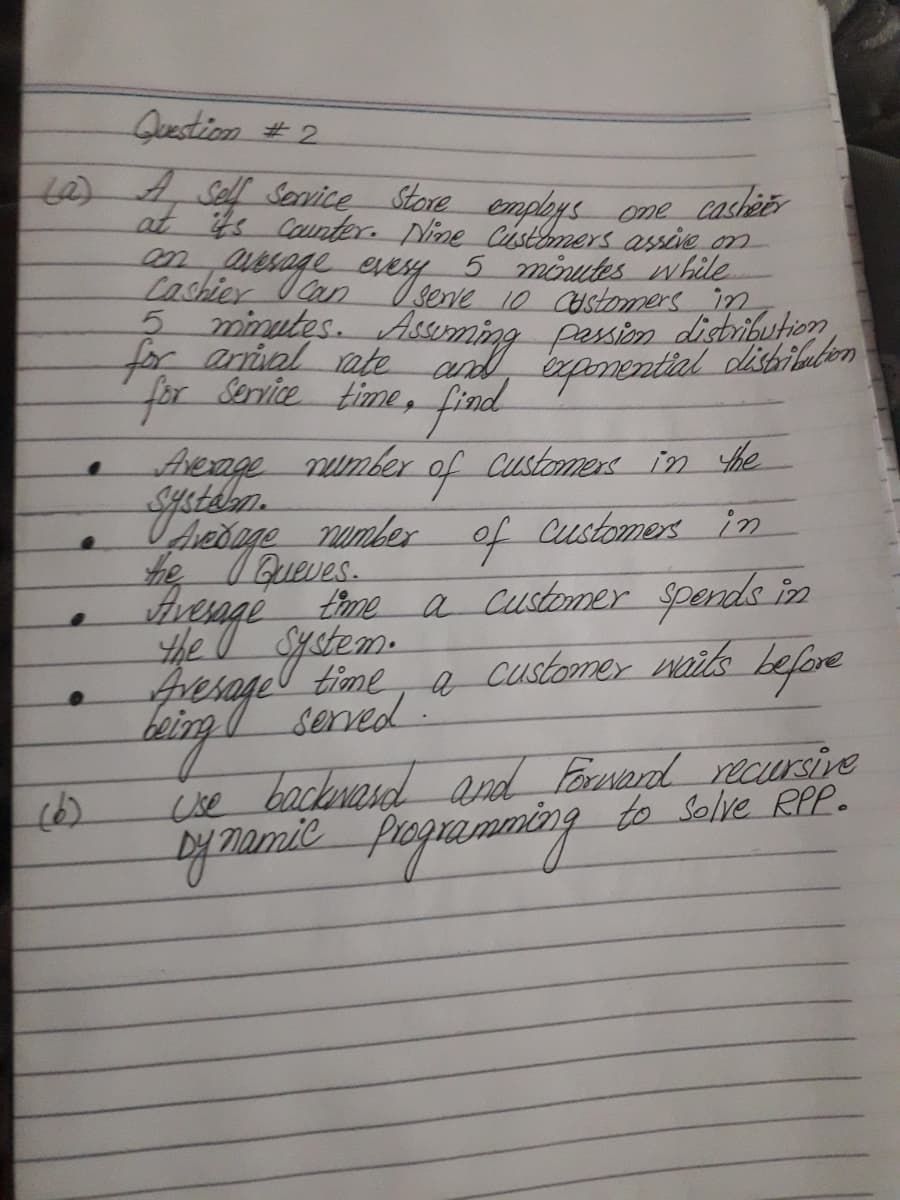 Question # 2
(a) A Self Service Store employs one casheer
at its Counter. Nine Customers assive on
an avesage evesy 5 minutes while
Cashier Can serve 10 customers in
5 minutes. Assuming passion distribution
for arrival rate and exponential distribution
for Service time, find
• Average number of Customers in the
System.
• Average number of Customers in
the Queues.
• Avesage time a Customer spends in
the System.
• Avesage time a Customer waits before
being served.
(b) Use backward and Forward recursive
Dynamic Programming to Solve RPP.